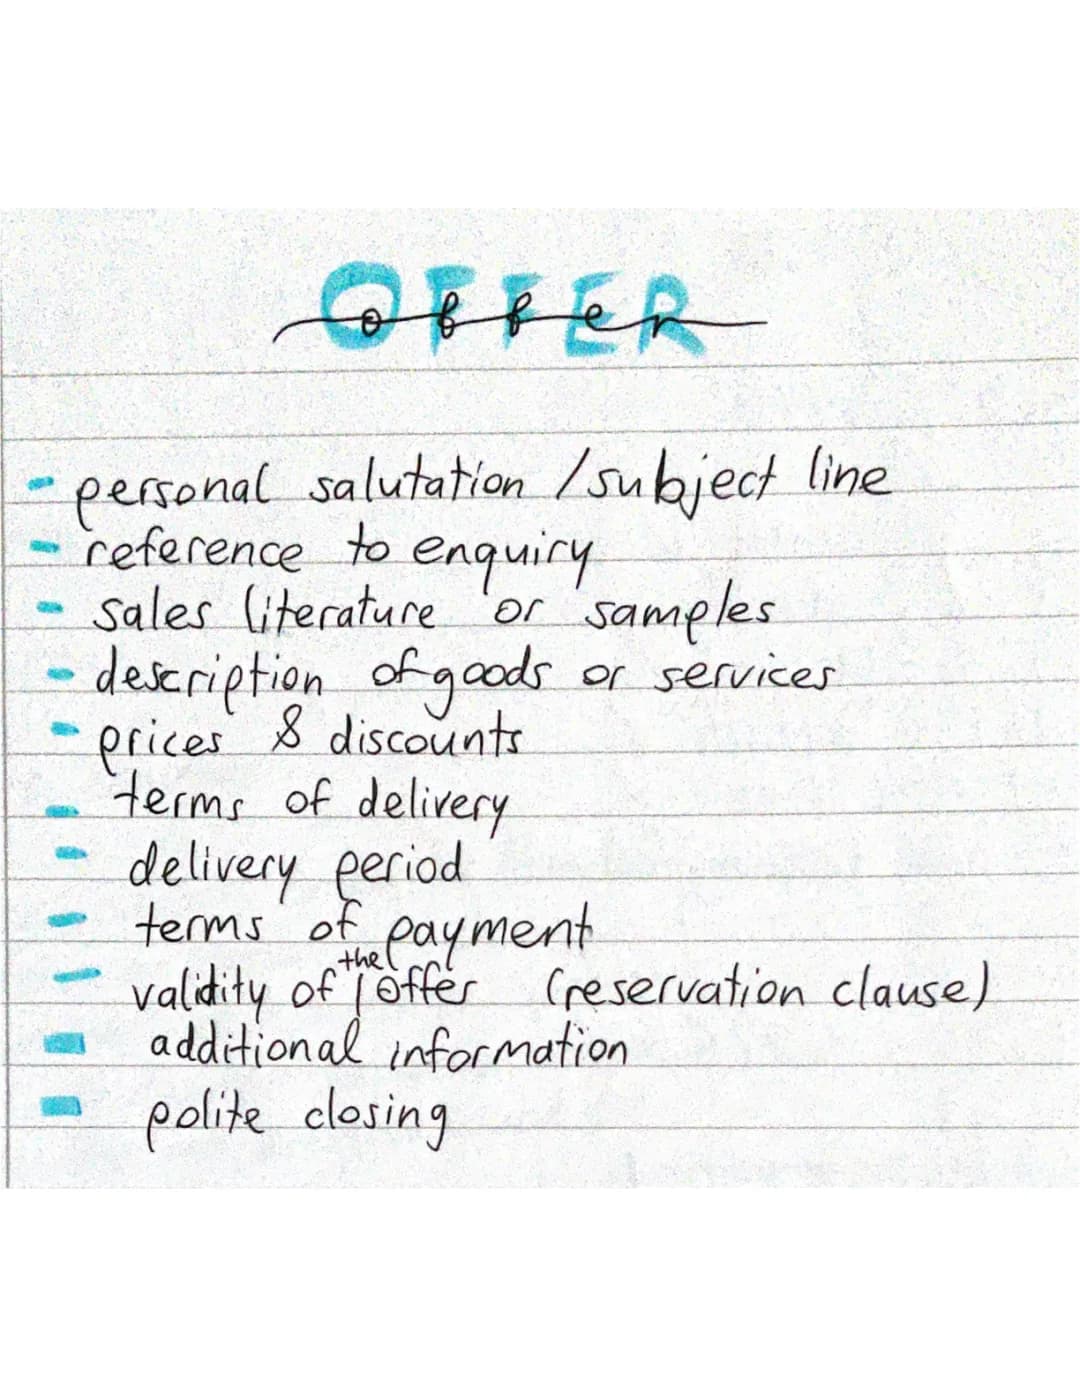 OFFER
offer
- personal salutation / subject line
- reference to enquiry
- sales literature or samples
- description of goods or services
- prices & discounts
- terms of delivery
- delivery period
- terms of payment
- validity of the offer (reservation clause)
- additional information
- polite closing